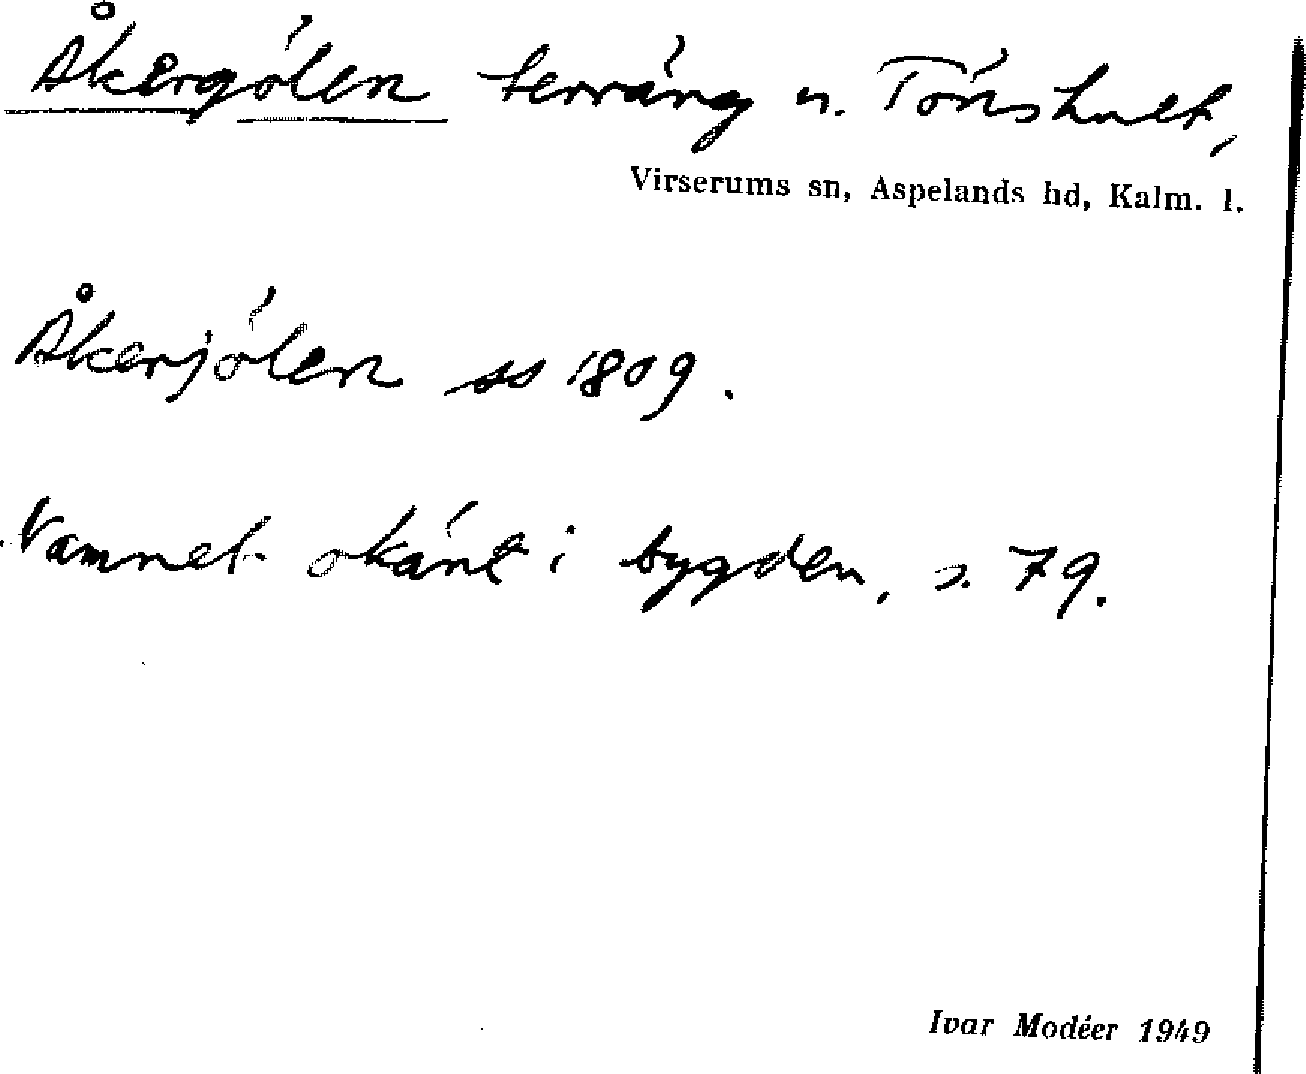 Åkergölen terräng n. Tönshult,
Virserums sn, Aspelands hd, Kalm. l.
Åkerjölen ss 1809.
Namnet okänt i bygden, s. 79.
Ivar Modéer 1949